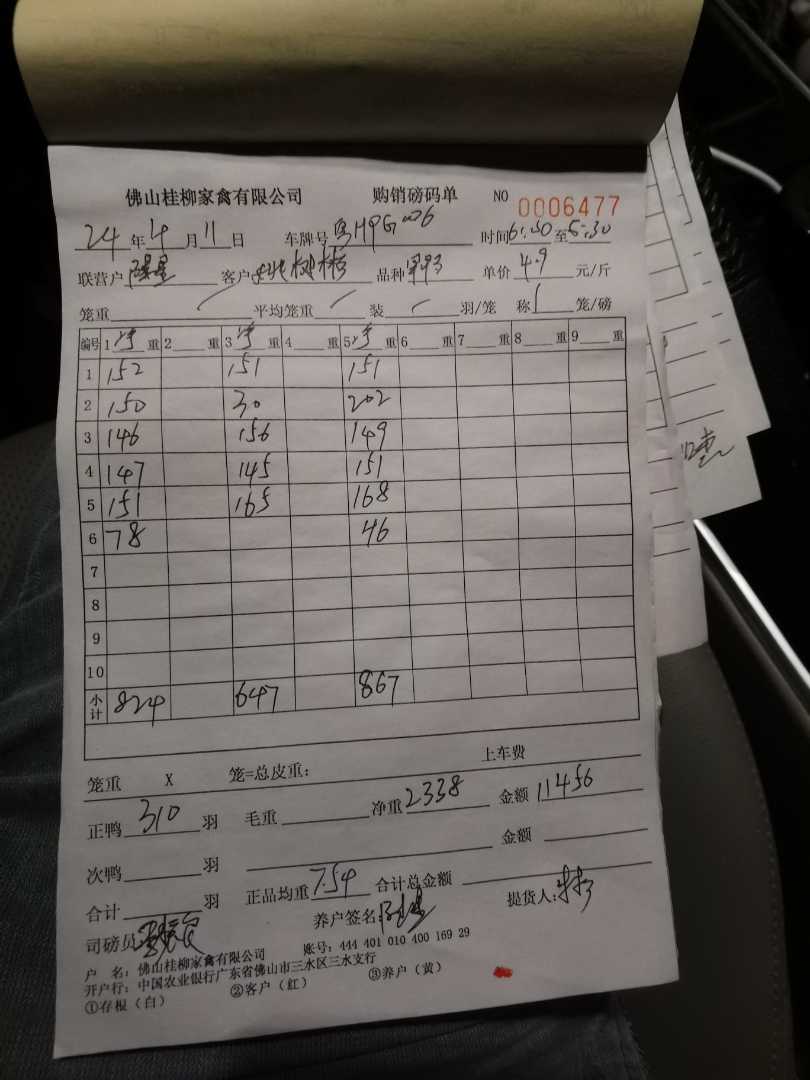 佛山桂柳家禽有限公司 购销磅码单 NO 0006477
24年4月11日 车牌号 粤H9G006 时间6:50至5:30
联营户 客户 品种 单价4.9元/斤
笼重 平均笼重 装 羽/笼 称1笼/磅
编号 1净重 2重 3净重 4重 5净重 6重 7重 8重 9重
1 152 151 151
2 150 30 202
3 146 156 149
4 147 145 151
5 151 165 168
6 78 46
7
8
9
10
小计 824 647 867
笼重 X 笼=总皮重: 上车费
正鸭310羽 毛重 净重2338 金额11456
次鸭 羽 金额
合计 羽 正品均重7.54 合计总金额
司磅员 养户签名 提货人:
户 名: 佛山桂柳家禽有限公司 账号: 444 401 010 400 169 29
开户行: 中国农业银行广东省佛山市三水区三水支行
①存根（白） ②客户（红） ③养户（黄）